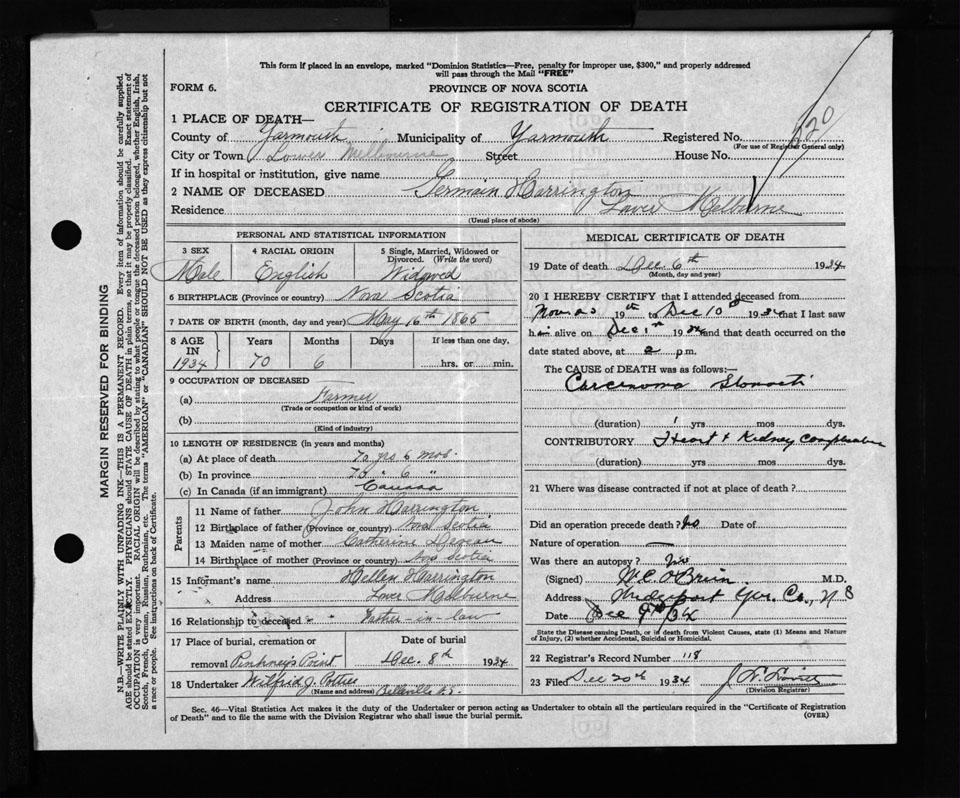 This form if placed in an envelope, marked "Dominion Statistics—Free, penalty for improper use, $300," and properly addressed
will pass through the Mail "FREE"
FORM 6.
PROVINCE OF NOVA SCOTIA
CERTIFICATE OF REGISTRATION OF DEATH
1 PLACE OF DEATH—
County of Yarmouth Municipality of Yarmouth Registered No.
(For use of Register General only)
City or Town Lower Melbourne Street House No.
If in hospital or institution, give name
2 NAME OF DECEASED Germain Harrington
Residence Lower Melburne
(Usual place of abode)
PERSONAL AND STATISTICAL INFORMATION
3 SEX 4 RACIAL ORIGIN 5 Single, Married, Widowed or
Divorced. (Write the word)
Male English Widowed
6 BIRTHPLACE (Province or country) Nova Scotia
7 DATE OF BIRTH (month, day and year) May 16th 1865
8 AGE Years Months Days If less than one day,
IN
1934 70 6 hrs. or min.
9 OCCUPATION OF DECEASED
(a) Farmer
(Trade or occupation or kind of work)
(b)
(Kind of industry)
10 LENGTH OF RESIDENCE (in years and months)
(a) At place of death 70 yrs 6 mos.
(b) In province 70 " 6 "
(c) In Canada (if an immigrant) Canada
Parents
11 Name of father John Harrington
12 Birthplace of father (Province or country) Nova Scotia
13 Maiden name of mother Catherine
14 Birthplace of mother (Province or country) Nova Scotia
15 Informant's name Hellen Harrington
Address Lower Melburne
16 Relationship to deceased Father-in-law
17 Place of burial, cremation or Date of burial
removal Pinkney's Point Dec. 8th 1934
18 Undertaker Wilfrid J. Pottier
(Name and address) Belleville N.S.
MEDICAL CERTIFICATE OF DEATH
19 Date of death Dec 6th 1934
(Month, day and year)
20 I HEREBY CERTIFY that I attended deceased from
19 to Dec 10th 1934 that I last saw
him alive on Dec 1st 1934 and that death occurred on the
date stated above, at 2 p.m.
The CAUSE of DEATH was as follows:—
Carcinoma Stomach
(duration) 1 yrs mos dys.
CONTRIBUTORY Heart & Kidney complication
(duration) yrs mos dys.
21 Where was disease contracted if not at place of death?
Did an operation precede death? No Date of
Nature of operation —
Was there an autopsy? No
(Signed) W.C. O'Brien M.D.
Address Wedgeport Yar. Co., N S
Date Dec 9th/34
State the Disease causing Death, or in death from Violent Causes, state (1) Means and Nature
of Injury, (2) whether Accidental, Suicidal or Homicidal.
22 Registrar's Record Number 118
23 Filed Dec 20th 1934
(Division Registrar)
Sec. 46—Vital Statistics Act makes it the duty of the Undertaker or person acting as Undertaker to obtain all the particulars required in the "Certificate of Registration
of Death" and to file the same with the Division Registrar who shall issue the burial permit.
(OVER)
MARGIN RESERVED FOR BINDING
N.B.—WRITE PLAINLY WITH UNFADING INK—THIS IS A PERMANENT RECORD. Every item of information should be carefully supplied.
AGE should be stated EXACTLY. PHYSICIANS should STATE CAUSE OF DEATH in plain terms, so that it may be properly classified. Exact statement of
OCCUPATION is very important. RACIAL ORIGIN will be described by stating to what people or tongue the deceased person belonged, whether English, Irish,
Scotch, French, German, Russian, Ruthenian, etc. The terms "AMERICAN" or "CANADIAN" SHOULD NOT BE USED as they express citizenship but not
a race or people. See instructions on back of Certificate.